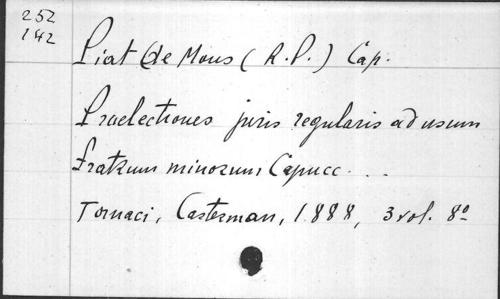 252
142
Piat (de Mons (R.P.) Cap.
Praelectiones juris regularis ad usum
Fratrum minorum Capucc. ...
Tornaci, Casterman, 1888, 3 vol. 8º